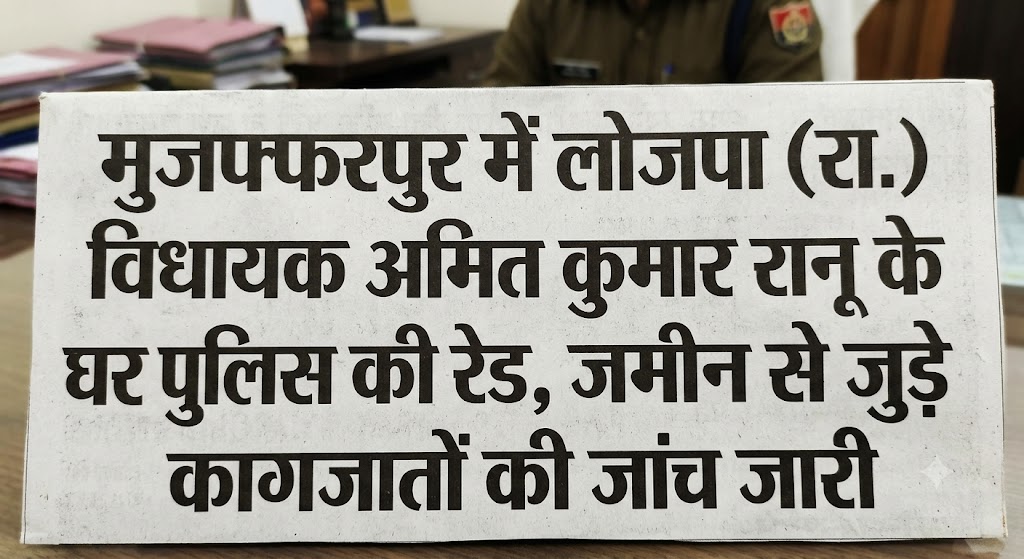 मुजफ्फरपुर में लोजपा (रा.)
विधायक अमित कुमार रानू के
घर पुलिस की रेड, जमीन से जुड़े
कागजातों की जांच जारी